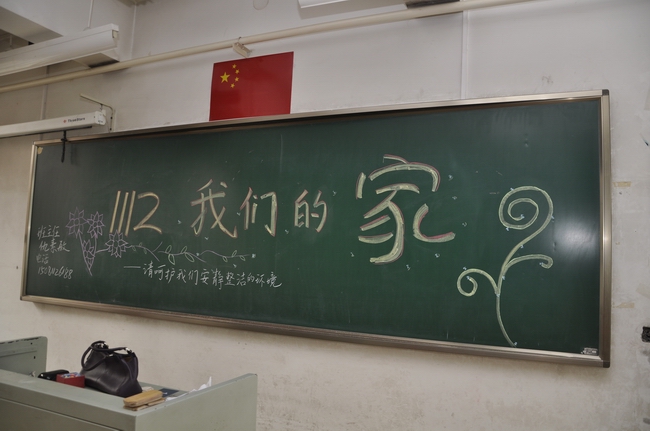 1112 我们的家
班主任
电话
——请呵护我们安静整洁的环境